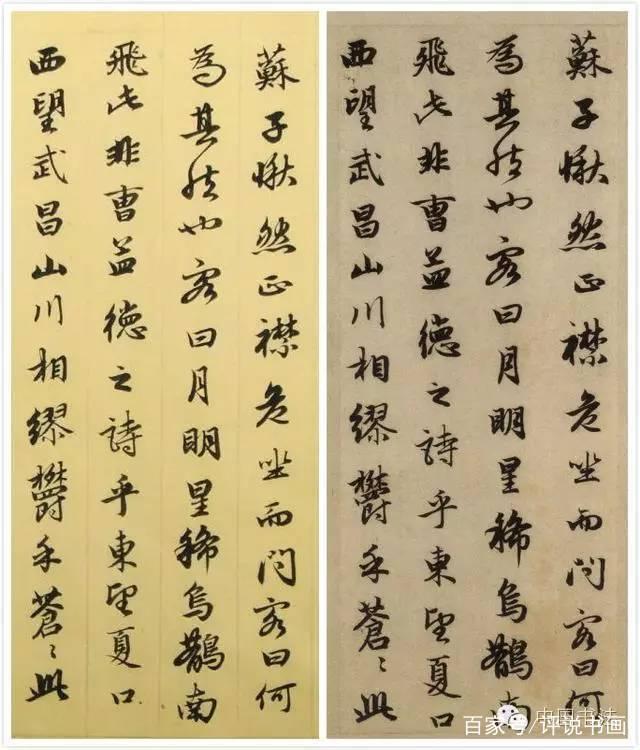 蘇子愀然正襟危坐而問客曰何
為其然也客曰月明星稀烏鵲南
飛此非曹孟德之詩乎東望夏口
西望武昌山川相繆鬱乎蒼〻此
蘇子愀然正襟危坐而問客曰何
為其然也客曰月明星稀烏鵲南
飛此非曹孟德之詩乎東望夏口
西望武昌山川相繆鬱乎蒼〻此
中国书法
百家号/评说书画